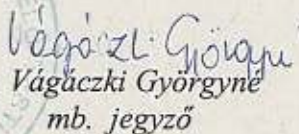 Vágáczki Györgyné
Vágáczki Györgyné
mb. jegyző